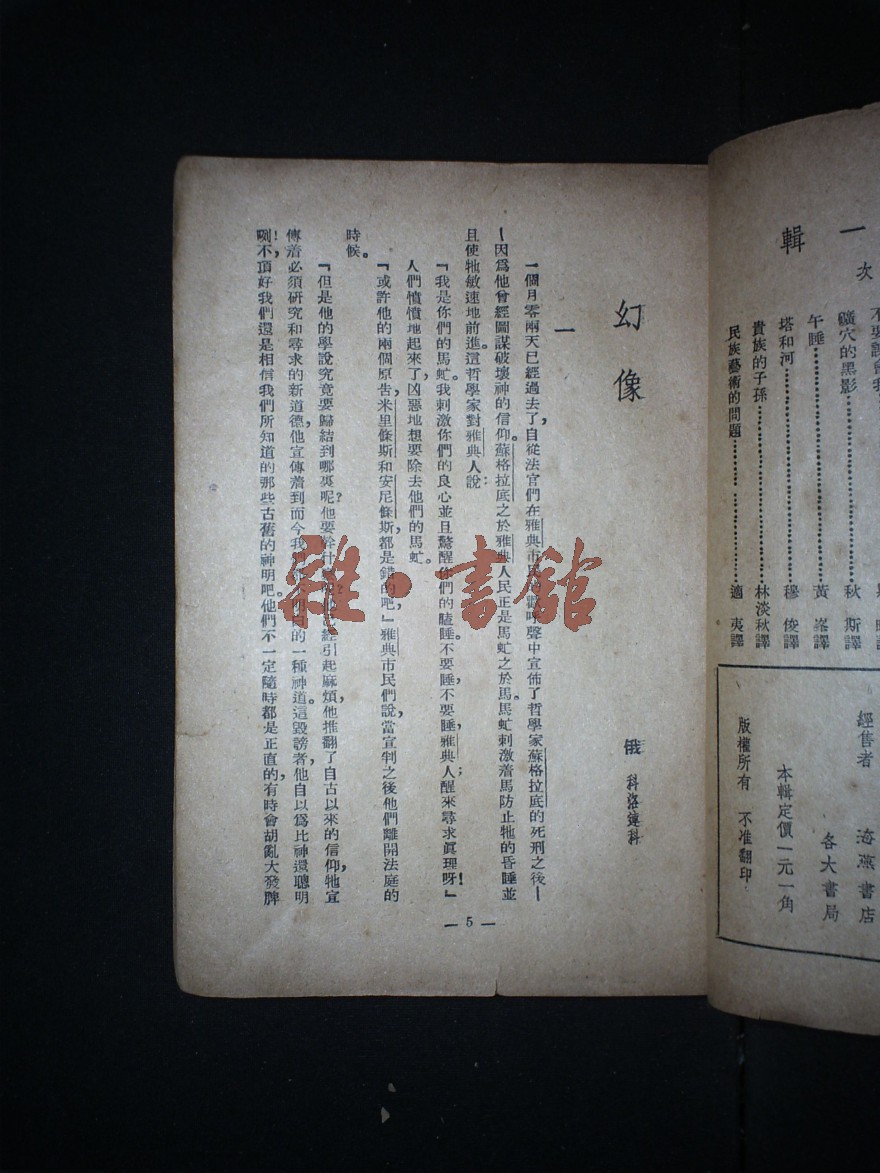 一輯
次
礦穴的黑影 秋斯譯
午睡 黃峯譯
塔和河 穆俊譯
貴族的子孫 林淡秋譯
民族藝術的問題 適夷譯
經售者 海燕書店
各大書局
本輯定價一元一角
版權所有 不准翻印
幻像
俄 科洛連科
一
一個月零兩天已經過去了,自從法官們在雅典市民的歡呼聲中宣佈了哲學家蘇格拉底的死刑之後—
—因為他曾經圖謀破壞神的信仰。蘇格拉底之於雅典人民正是馬虻之於馬。馬虻刺激着馬防止牠的昏睡並
且使牠敏速地前進。這哲學家對雅典人說:
『我是你們的馬虻。我刺激你們的良心並且驚醒你們的瞌睡。不要睡,不要睡,雅典人;醒來尋求眞理呀!』
人們憤憤地起來了,凶惡地想要除去他們的馬虻。
『或許他的兩個原告,米里條斯和安尼條斯,都是錯的吧,』雅典市民們說,當宣判之後他們離開法庭的
時候。
『但是他的學說究竟要歸結到哪裏呢?他要幹什?經引起麻煩,他推翻了自古以來的信仰,牠宣
傳着必須研究和尋求的新道德,他宣傳着到而今我的一種神道。這毀謗者,他自以爲比神還聰明
咧!不,頂好我們還是相信我們所知道的那些古舊的神明吧。他們不一定隨時都是正直的,有時會胡亂大發脾
— 5 —
雜·書館